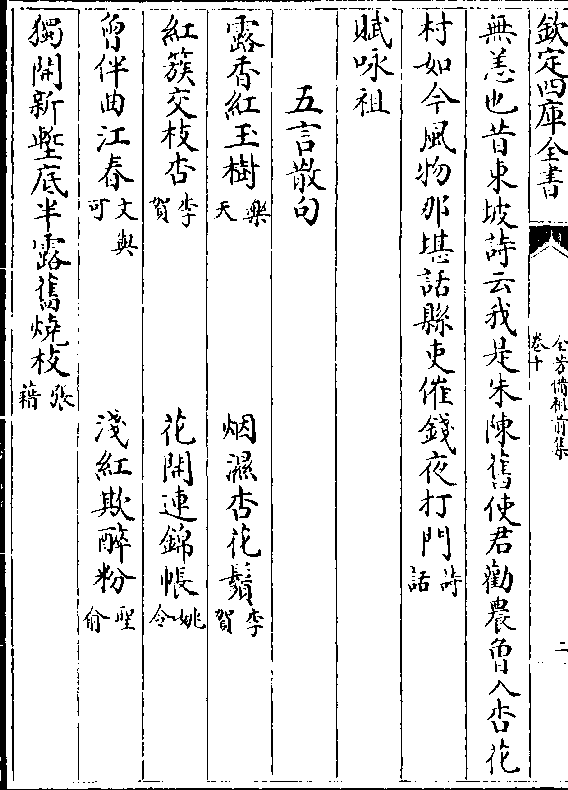 欽定四庫全書
全芳備祖前集
卷十
二
無恙也昔東坡詩云我是朱陳舊使君勸農曾入杏花
村如今風物那堪話縣吏催錢夜打門詩話
賦咏祖
五言散句
露香紅玉樹樂天
烟濕杏花鬚李賀
紅簇交枝杏李賀
花開連錦帳姚令
曾伴曲江春文與可
淺紅欺醉粉聖俞
獨開新塹底半露舊燒枝張籍